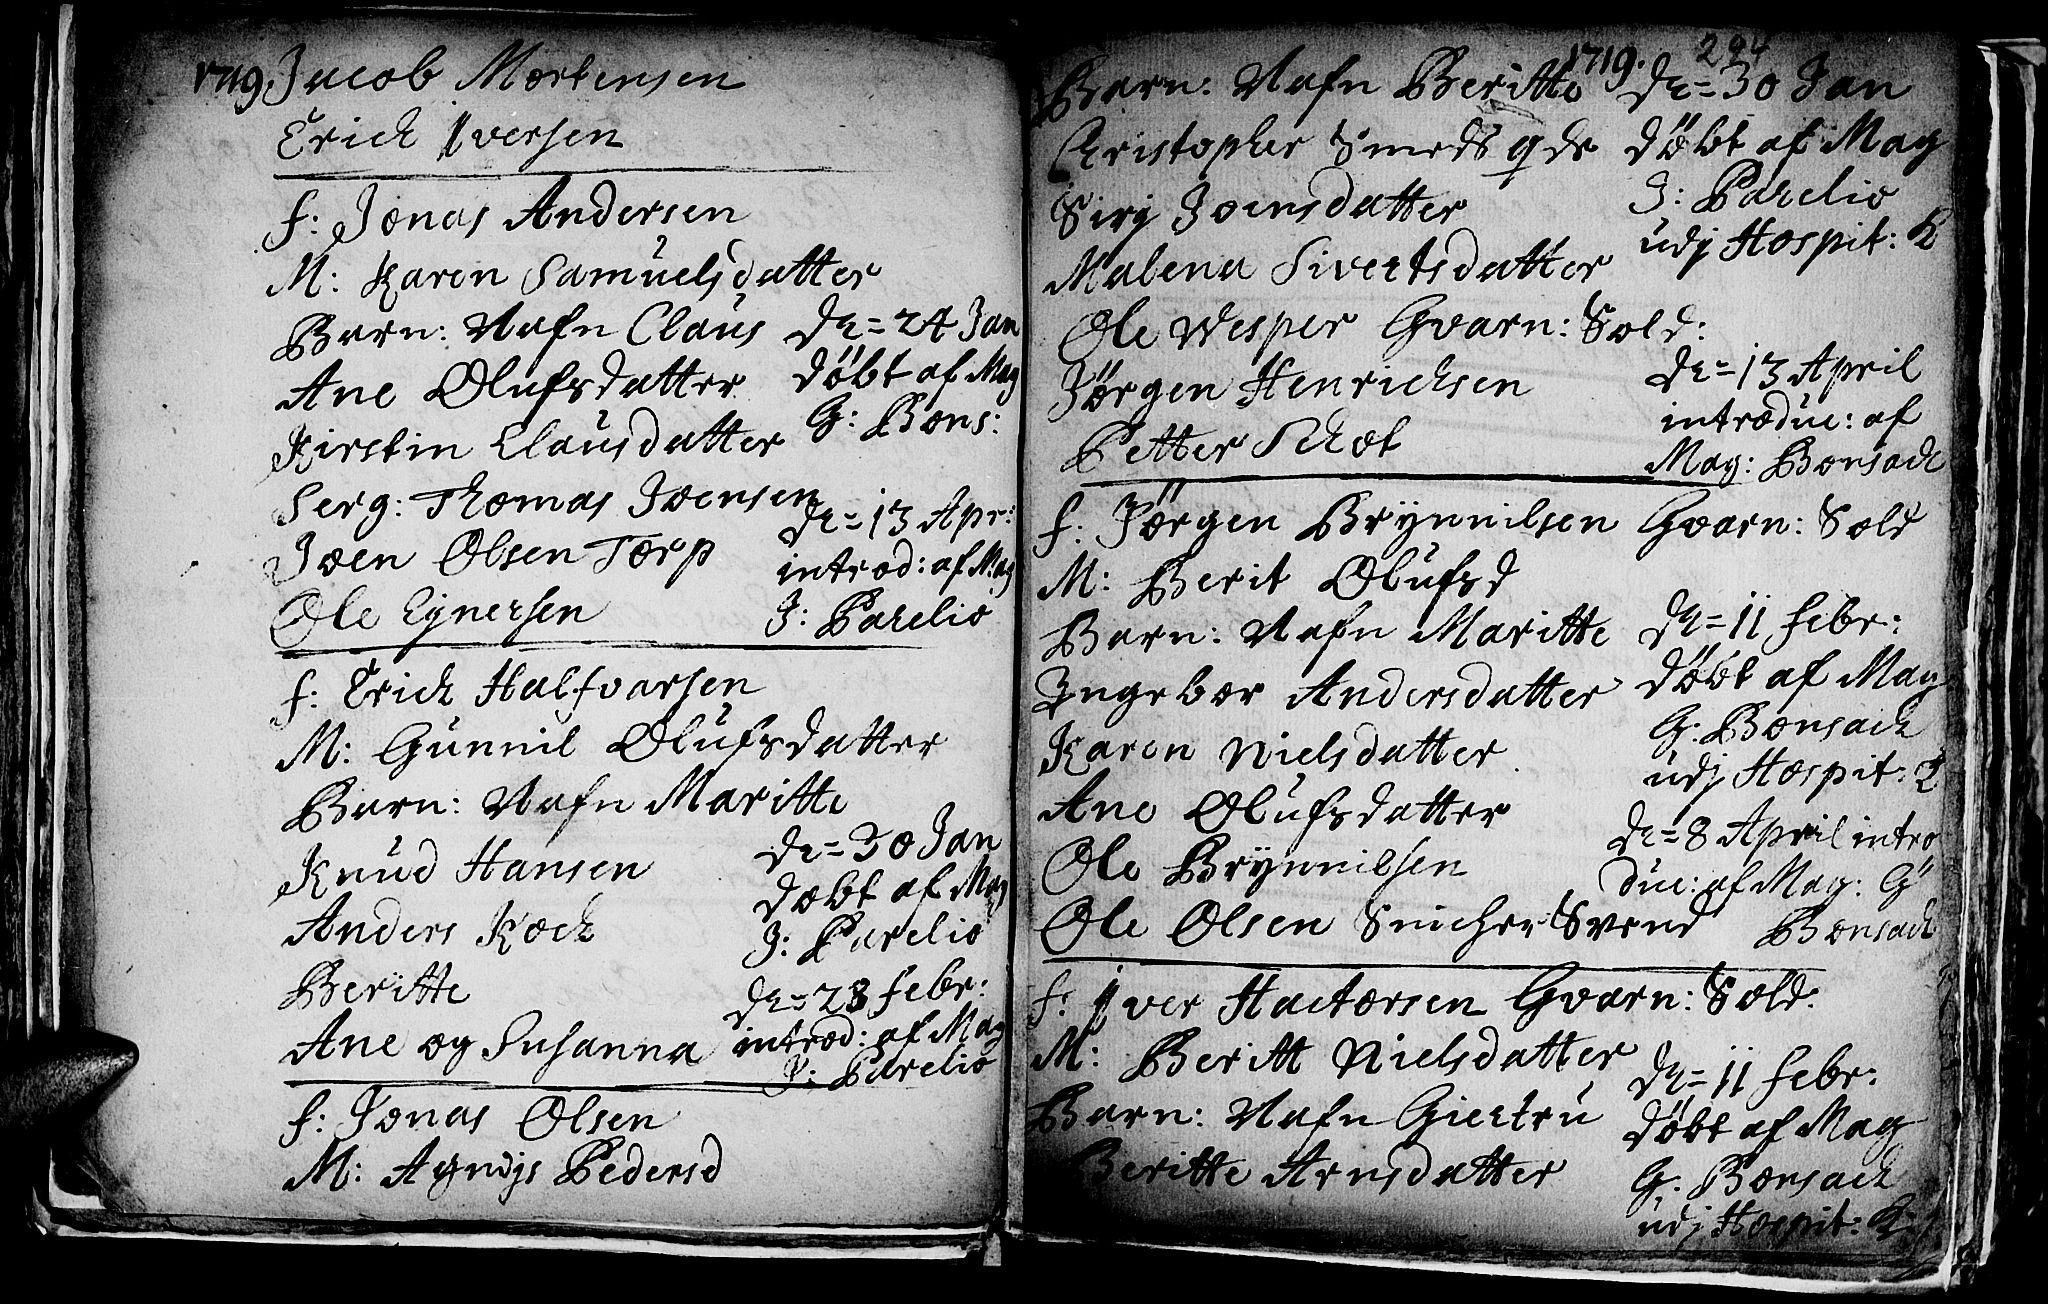 1719. Jacob Mortensen
Erich Iversen
f: Jonas Andersen
M: Karen Samuelsdatter
Barn: Nafn Claus
Ane Olufsdatter
Kirstin Clausdatter
Serg: Thomas Joensen
Joen Olsen Torp
Ole Eynersen
De = 24 Jan
döbt af Mag
G: Bons:
De = 13 Apr:
introd: af Mag
J: Parelio
f: Erich Halfvarsen
M: Gunnil Olufsdatter
Barn: Nafn Maritte
Knud Hansen
Anders Koch
Beritte
Ane og Susanna
De = 30 Jan
dobt af Mag
J: Parelio
De = 28 febr:
introd: af Mag
J: Parelio
f: Jonas Olsen
M: Agndjs Pedersd
1719. 294
Barn: Nafn Beritte
Christopher Smeds qde
Sirj Joensdatter
Malena Sivertsdatter
Ole Vesper Gvarn: Sold:
Jörgen Henrichsen
Petter Schot
De = 30 Jan
döbt af Mag
J: Parelio
udj Hospit: K
De = 13 April
introduc: af
Mag: Bonsach
f: Jörgen Brynnilsen Gvarn: Sold
M: Berit Olufsd
Barn: Nafn Maritte
Ingebor Andersdatter
Karen Nielsdatter
Ane Olufsdatter
Ole Brynnilsen
Ole Olsen Snicher Svend
De = 11 febr:
döbt af Mag
G: Bonsach
udj Hospit: K
De = 8 April intro
duc: af Mag: G
Bonsach
f: Iver Hactorsen Gvarn: Sold:
M: Beritt Nielsdatter
Barn: Nafn Giertru
Beritte Arnsdatter
De = 11 febr:
döbt af Mag
G: Bonsach
udj Hospit: K: